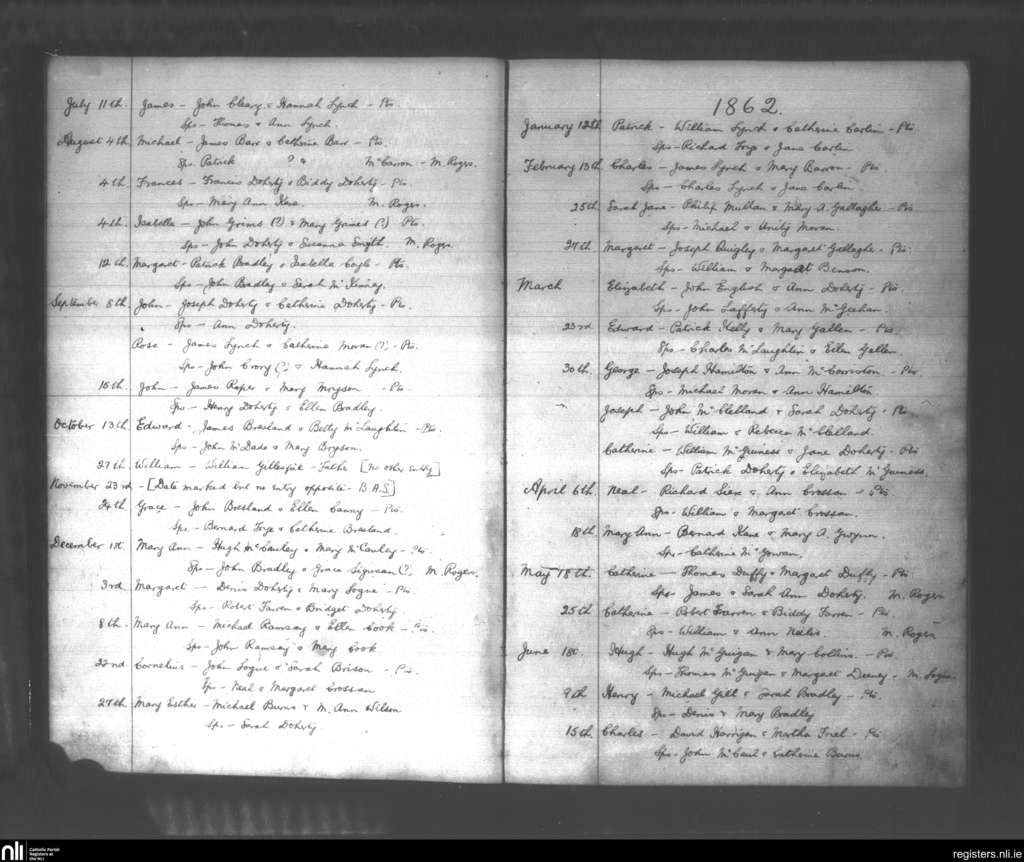 July 11th. James - John Cleary & Hannah Lynch - Pts.
Sps - Thomas & Ann Lynch.
August 4th. Michael - James Barr & Catherine Barr - Pts.
Sps. Patrick ? & McCarron - M. Rogrs.
4th. Frances - Francis Doherty & Biddy Doherty - Pts.
Sps - Mary Ann Kane. M. Rogrs.
4th. Isabella - John Grimes (?) & Mary Grimes (?) Pts.
Sps - John Doherty & Susanna Smyth. M. Rogrs.
12th. Margaret - Patrick Bradley & Isabella Coyle - Pts.
Sps - John Bradley & Sarah McKinney.
September 8th. John - Joseph Doherty & Catherine Doherty - Pts.
Sps - Ann Doherty.
Rose - James Lynch & Catherine Moran (?) - Pts.
Sps - John Crory (?) & Hannah Lynch.
18th. John - James Roper & Mary - Pts.
Sps - Henry Doherty & Ellen Bradley.
October 13th. Edward - James Bresland & Betty McLaughlin - Pts.
Sps - John McDade & Mary Bryson.
27th. William - William Gillespie - Father [no other entry]
November 23rd. - [Date marked but no entry opposite - B.A.S.]
24th. Grace - John Bresland & Ellen Canny - Pts.
Sps - Bernard Forge & Catherine Bresland.
December 1st. Mary Ann - Hugh McCauley & Mary McCauley - Pts.
Sps - John Bradley & Grace (?) M. Rogers.
3rd. Margaret - Denis Doherty & Mary Logue - Pts.
Sps - Robert Farren & Bridget Doherty.
8th. Mary Ann - Michael Ramsay & Ellen Cook - Pts.
Sps - John Ramsay & Mary Cook
22nd. Cornelius - John Logue & Sarah Brison - Pts.
Sps - Neal & Margaret Crossan
27th. Mary Esther - Michael Burns & M. Ann Wilson
Sps - Sarah Doherty
1862.
January 12th Patrick - William Lynch & Catherine Carlin - Pts
Sps - Richard Forge & Jane Carlin
February 13th. Charles - James Lynch & Mary Barron - Pts.
Sps - Charles Lynch & Jane Carlin
25th. Sarah Jane - Philip Mullan & Mary A. Gallagher - Pts
Sps - Michael & Unity Moran.
27th. Margaret - Joseph Quigley & Margaret Gallagher - Pts.
Sps - William & Margaret Benson.
March Elizabeth - John English & Ann Doherty - Pts.
Sps - John Lafferty & Ann McGeehan.
23rd. Edward - Patrick Kelly & Mary Gallen - Pts.
Sps - Charles McLaughlin & Ellen Gallen.
30th. George - Joseph Hamilton & Ann McCorriston. - Pts
Sps - Michael Moran & Ann Hamilton.
Joseph - John McClelland & Sarah Doherty - Pts
Sps - William & Rebecca McClelland.
Catherine - William McGuiness & Jane Doherty - Pts
Sps - Patrick Doherty & Elizabeth McGuiness.
April 6th. Neal - Richard & Ann Crossan - Pts.
Sps - William & Margaret Crossan.
18th. Mary Ann - Bernard Kane & Mary A. Gwynn.
Sps - Catherine McGowan.
May 18th. Catherine - Thomas Duffy & Margaret Duffy - Pts
Sps - James & Sarah Ann Doherty. M. Rogers
25th. Catherine - Robert Farren & Biddy Farren - Pts.
Sps - William & Ann Nelis. M. Rogers
June 1st. Hugh - Hugh McGuigan & Mary Collins. - Pts
Sps - Thomas McGuigan & Margaret Deeney - M. Logue
9th. Henry - Michael Gill & Sarah Bradley - Pts.
Sps - Denis & Mary Bradley
15th. Charles - David Harrigan & Martha Friel - Pts
Sps - John McCaul & Catherine Burns.
nli Catholic Parish
Registers at
the NLI
registers.nli.ie